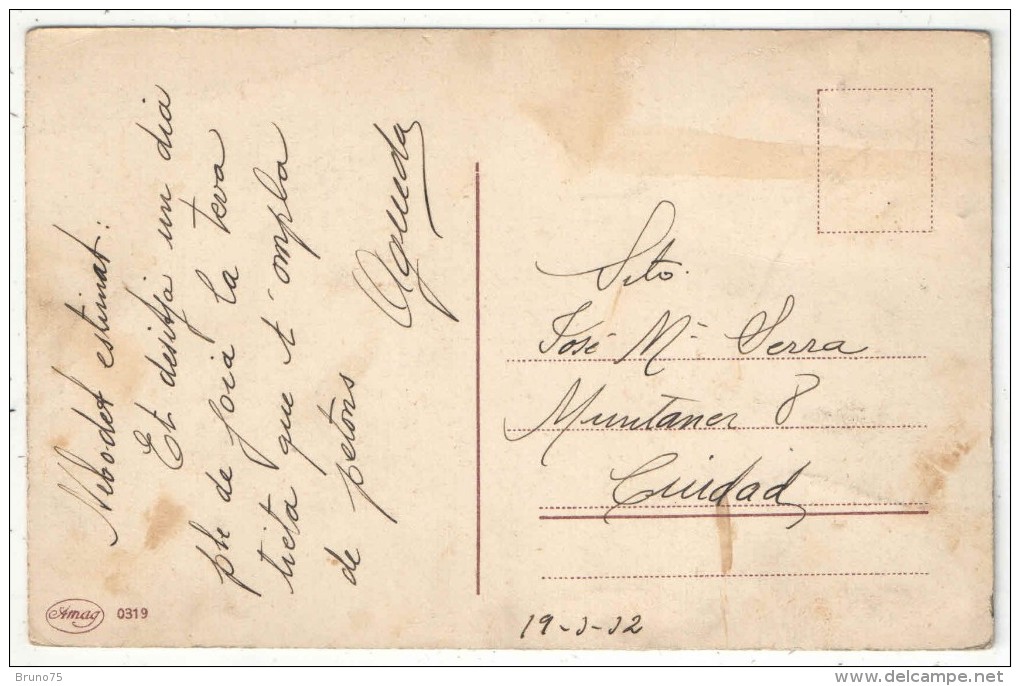 Nevodet estimat:
Et desitja un dia
ple de joia la teva
tieta que t'ompla
de petons
Agueda
Sto.
José Mª Serra
Muntaner 8
Ciudad
19-3-32
Amag 0319
Bruno75
delcampe.net